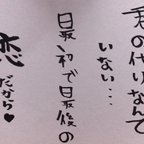 君の代りなんて
いない…
最初で最後の
恋だから♥